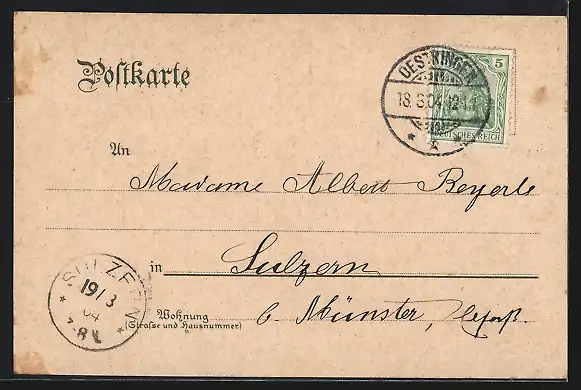 Postkarte
5
OESTRINGEN
18.3.04.12-1
DEUTSCHES REICH
An
Madame Albert Beyerle
SULZERN
19/3
04
7-8V
in Sulzern
Wohnung
(Straße und Hausnummer)
b. Münster, Elsaß.